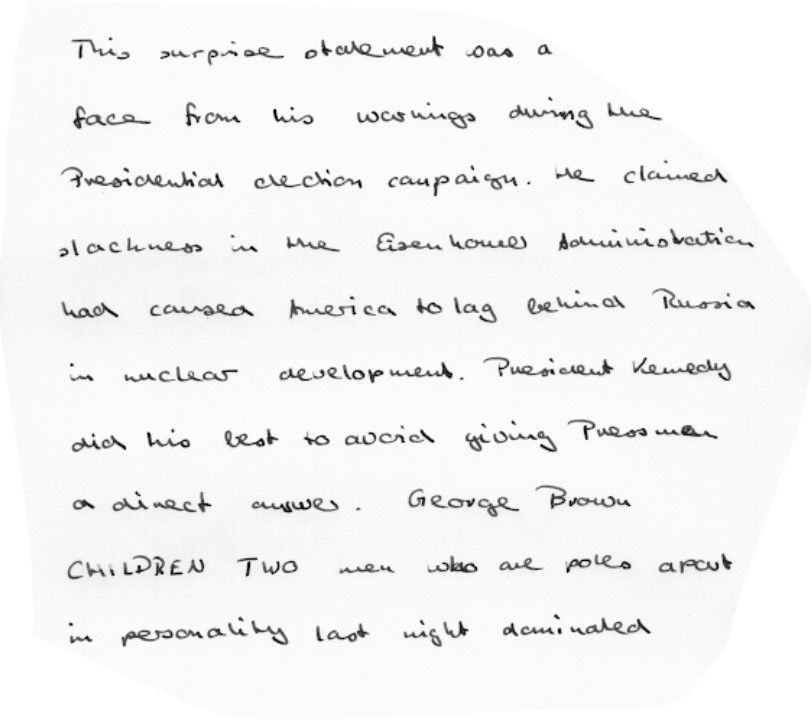 This surprise statement was a
face from his warnings during the
Presidential election campaign. He claimed
slackness in the Eisenhower Administration
had caused America to lag behind Russia
in nuclear development. President Kennedy
did his best to avoid giving Pressmen
a direct answer. George Brown
CHILDREN TWO men who are poles apart
in personality last night dominated